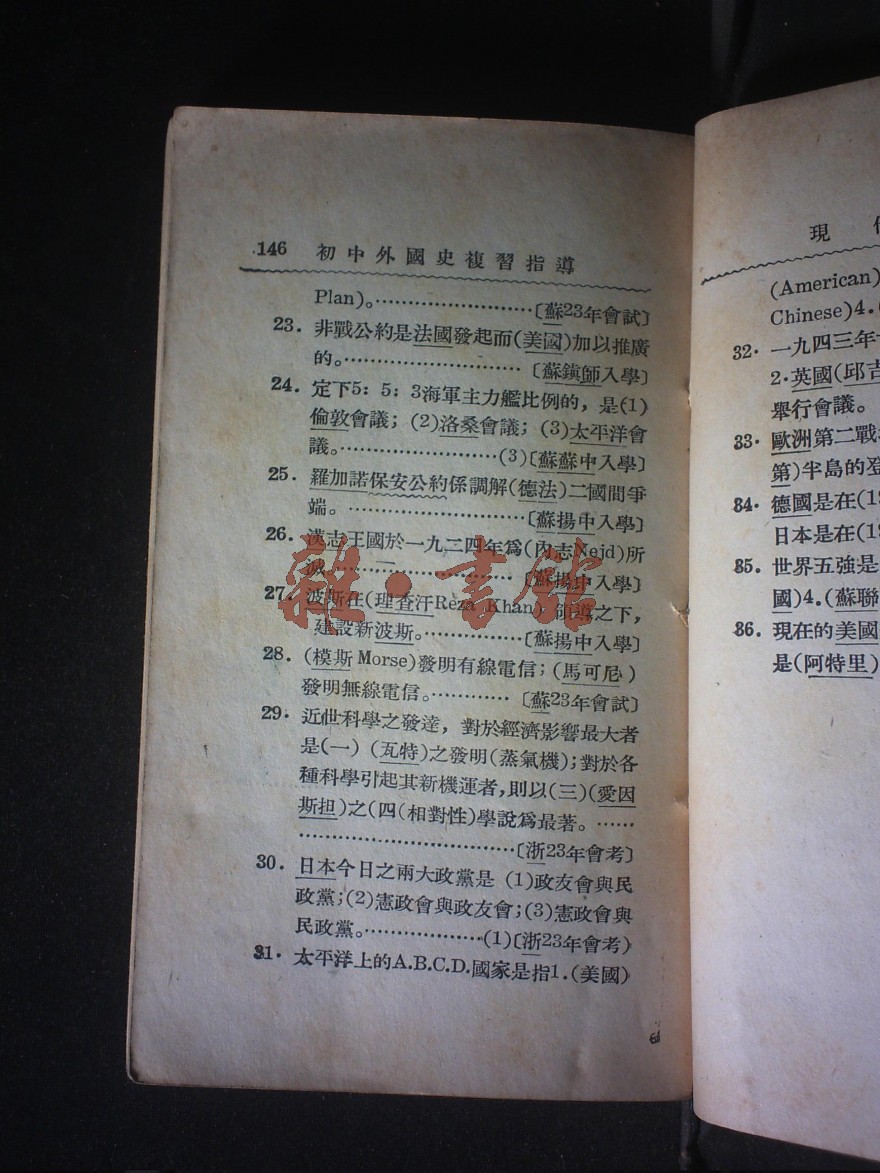 146 初中外國史複習指導
Plan)。……………………〔蘇23年會試〕
23. 非戰公約是法國發起而(美國)加以推廣
的。……………………〔蘇鎮師入學〕
24. 定下5:5:3海軍主力艦比例的，是(1)
倫敦會議；(2)洛桑會議；(3)太平洋會
議。…………………(3)〔蘇蘇中入學〕
25. 羅加諾保安公約係調解(德法)二國間爭
端。……………………〔蘇揚中入學〕
26. 漢志王國於一九二四年爲(內志Nejd)所
滅。……………………〔蘇揚中入學〕
27. 波斯在(理查汗Reza Khan)領導之下，
建設新波斯。…………〔蘇揚中入學〕
28. (模斯Morse)發明有線電信；(馬可尼)
發明無線電信。…………〔蘇23年會試〕
29. 近世科學之發達，對於經濟影響最大者
是(一)(瓦特)之發明(蒸氣機)；對於各
種科學引起其新機運者，則以(三)(愛因
斯担)之(四(相對性)學說爲最著。……
……………………………〔浙23年會考〕
30. 日本今日之兩大政黨是 (1)政友會與民
政黨；(2)憲政會與政友會；(3)憲政會與
民政黨。………………(1)〔浙23年會考)
31. 太平洋上的A.B.C.D.國家是指1.(美國)
現
(American)
Chinese)4.(
32. 一九四三年
2.英國(邱吉
舉行會議。
33. 歐洲第二戰
第)半島的登
84. 德國是在(1
日本是在(19
85. 世界五強是
國)4.(蘇聯
86. 現在的美國
是(阿特里)
雜·書館